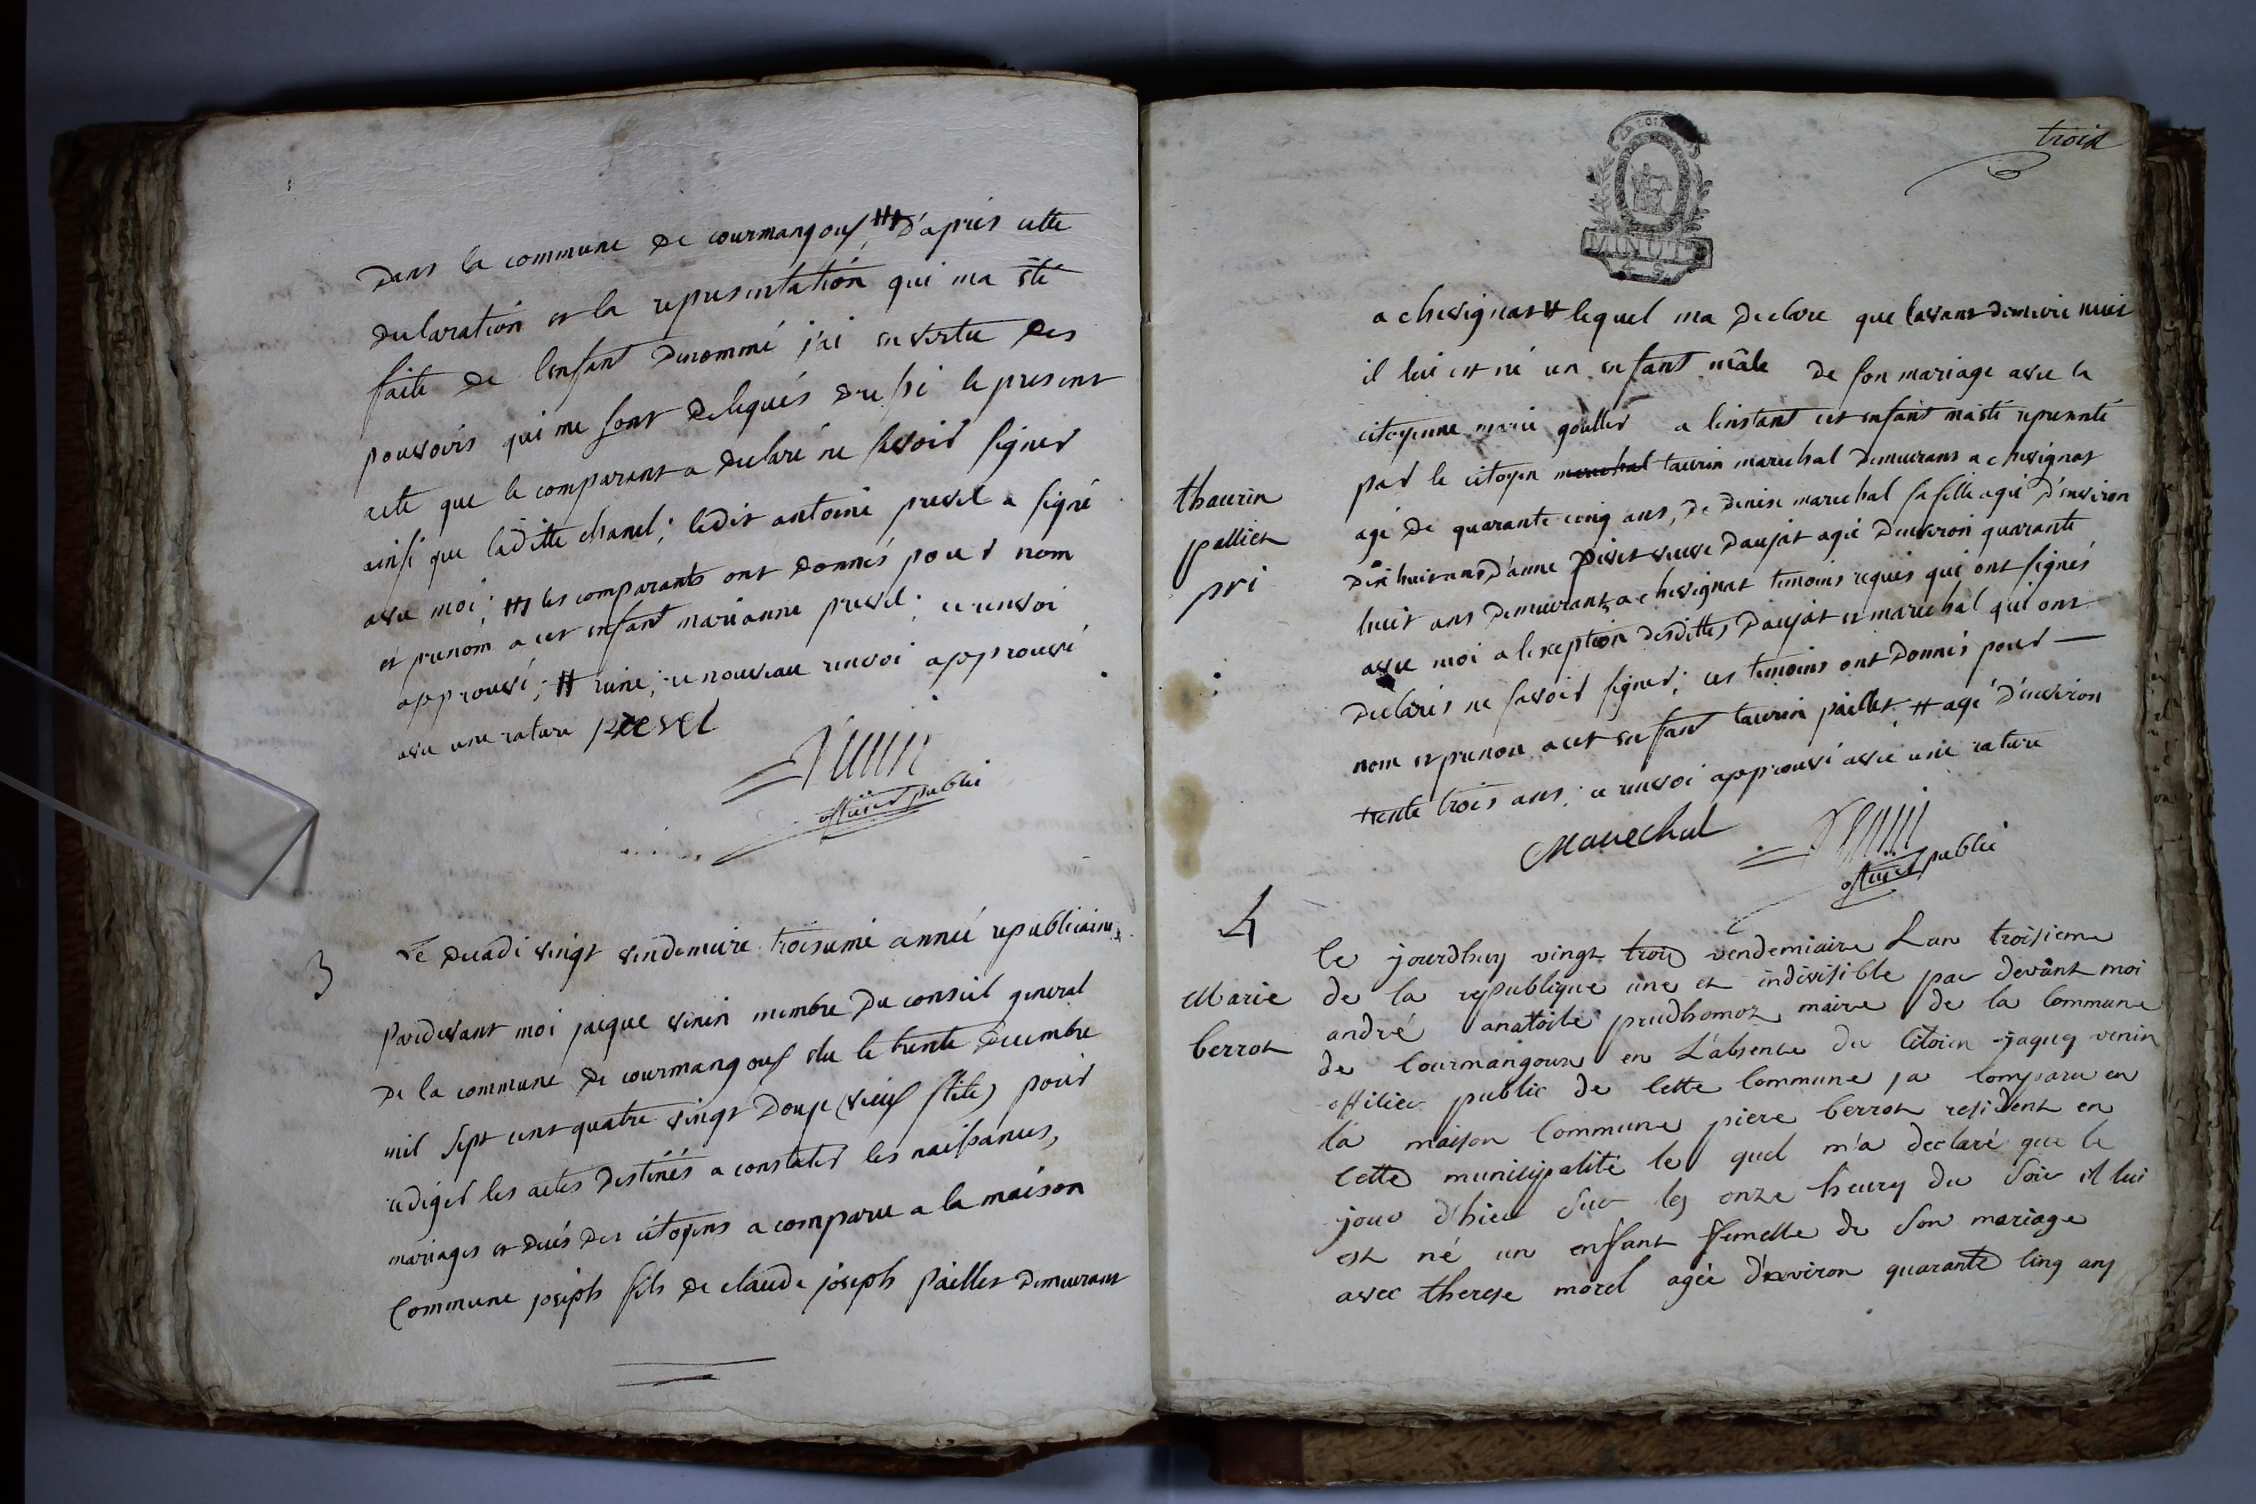 dans la commune de courmangouf ⧺ d'après cette
declaration et la representation qui ma été
faite de l'enfant denommé j'ai en vertu des
pouvoirs qui me sont delegués dressé le present
acte que le comparant a declaré ne savoir signer
ainsi que laditte chanel; ledit antoine prevel a signé
avec moi; ⧺ les comparants ont donnés pour nom
et prenom a cet enfant marianne prevel; ce renvoi
approuvé; # ce nouveau renvoi approuvé
avec une rature prevel
Venin
officier public
3
Le decadi vingt vendemiaire troisieme année republicaine
Pardevant moi jacque venin membre du conseil general
de la commune de courmangouf elu le trente decembre
mil sept cent quatre vingt douze (vieux stile) pour
rediger les actes destinés a constater les naissances,
mariages et decés des citoyens a comparu a la maison
Commune joseph fils de claude joseph paillet demeurant
trois
LA LOI
MINUTE
4 S.
a chevignat # lequel ma declare que l'avant derniere nuit
il lui est né un enfant mâle de son mariage avec la
citoyenne marie gouller a linstant cet enfant ma eté representé
thaurin
palliet
pri
par le citoyen marechal taurin marechal demeurant a chevignat
agé de quarante cinq ans, de denise marechal sa fille agée d'environ
dix huit ans d'anne pivet veuve daujat agée d'environ quarante
huit ans demeurants a chevignat temoins requis qui ont signés
avec moi a lexception desdittes daujat et marechal qui ont
declarés ne savoir signer; ces temoins ont donnés pour —
nom et prenom a cet enfant taurin paillet; # agé d'environ
trente trois ans; ce renvoi approuvé avec une rature
Marechal Venin
officier public
4
Marie
berrot
le jourdhuy vingt trois vendemiaire Lan troisieme
de la republique une et indivisible par devant moi
andré anatoile prudhomot maire de la Commune
de Courmangoux en L'absence du Citoien jaques venin
officier public de Cette Commune, a Comparu en
la maison Commune piere berrot resident en
Cette municipalité le quel m'a declaré que le
jour d'hier sur les onze heures du soir il lui
est né un enfant femelle de son mariage
avec therese morel agée d'environ quarante Cinq ans